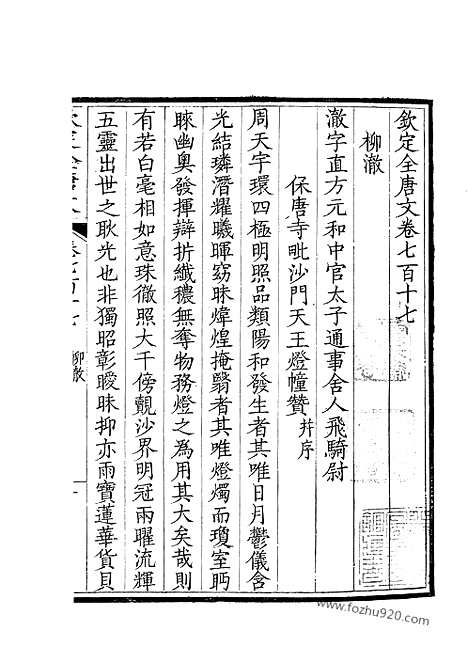 欽定全唐文卷七百十七
柳澈
澈字直方元和中官太子通事舍人飛騎尉
保唐寺毗沙門天王燈幢贊 并序
周天宇環四極明照品類陽和發生者其唯日月鬱儀含
光結璘潛耀曦暉窈昧煒煌掩翳者其唯燈燭而瓊室眄
睞幽奧發揮辯折纖穠無奪物務燈之為用其大矣哉則
有若白毫相如意珠徹照大千傍覿沙界明冠兩曜流輝
五靈出世之耿光也非獨昭彰曖昧抑亦雨寶蓮華貨貝
柳澈
www.fozhu920.com